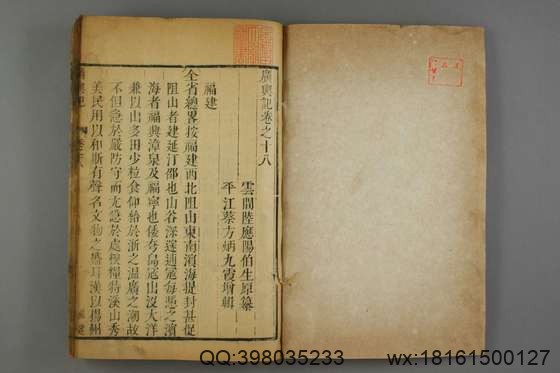 廣輿記卷之十八
雲間陸應陽伯生原纂
平江蔡方炳九霞增輯
福建
全省總畧按福建西北阻山東南濱海提封甚促
阻山者建延汀邵也山谷深邃
海者福興漳泉及福寧也倭夷島寇出沒大洋
兼以山多田少粒食仰給於浙之溫廣之潮故
不但急於嚴防守而尤急於處理糧特溪山秀
美民用以和斯有聲名文物之盛耳漢以揚州
QQ:398035233
wx:18161500127